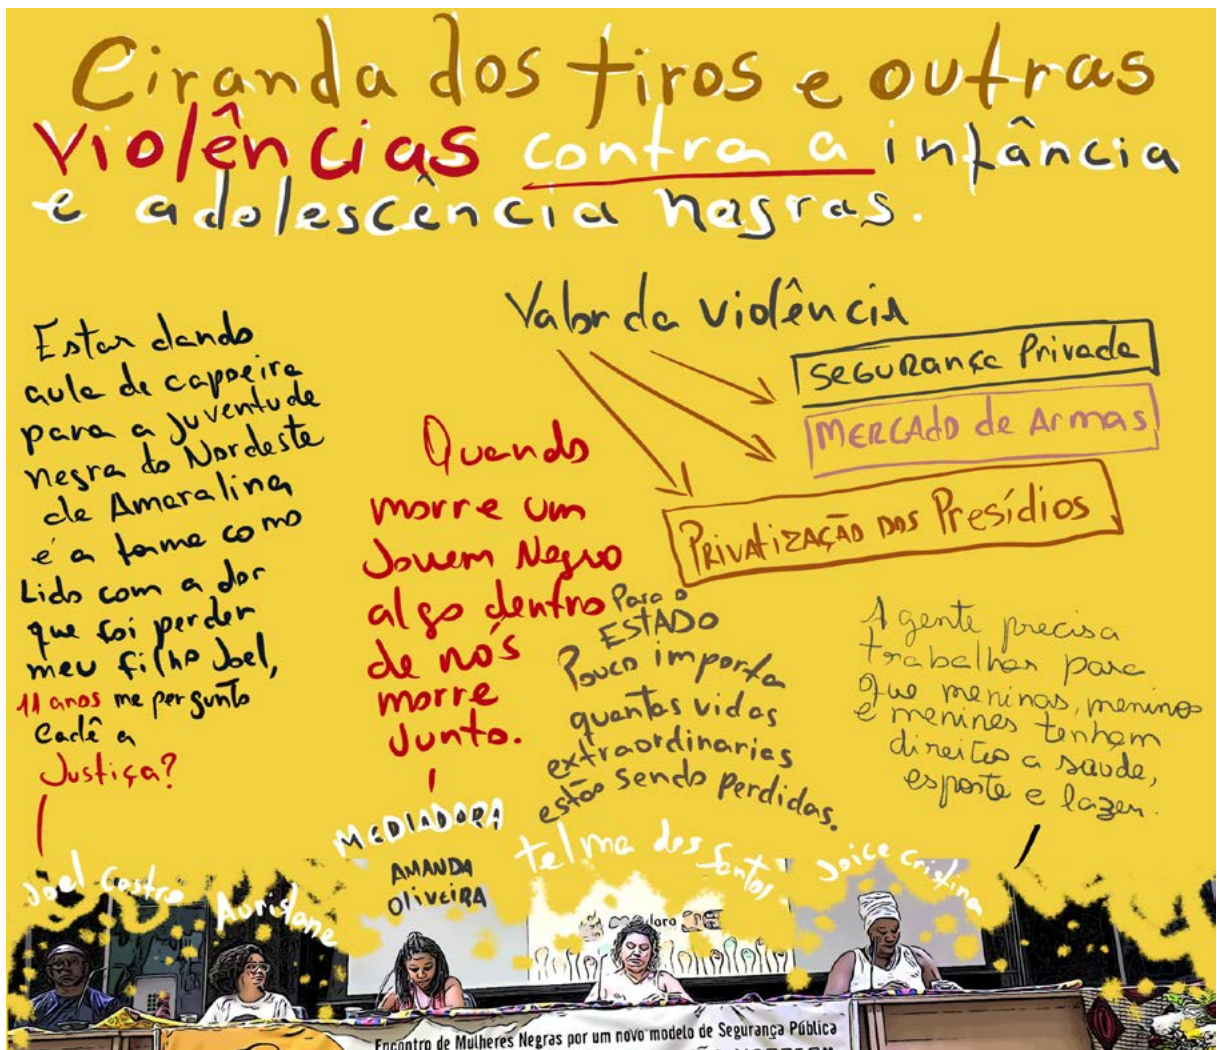 Ciranda dos tiros e outras
violências contra a infância
e adolescência negras.
Estar dando
aula de capoeira
para a juventude
negra do Nordeste
de Amaralina
é a forma como
Lido com a dor
que foi perder
meu filho Joel,
11 anos me pergunto
Cadê a
Justiça?
Quando
morre um
Jovem Negro
algo dentro
de nós
morre
Junto.
Valor da violência
SEGURança Privada
MERCAdo de Armas
PRIVATIZAÇÃO DOS Presídios
Para o
ESTADO
Pouco importa
quantas vidas
extraordinarias
estão sendo perdidas.
A gente precisa
trabalhar para
que meninas, meninos
e menines tenham
direito a saude,
esporte e lazer.
Joel Castro
Auristane
MEDIADORA
AMANDA
OLIVEIRA
telma dos Santos
Joice Cristina
Encontro de Mulheres Negras por um novo modelo de Segurança Pública